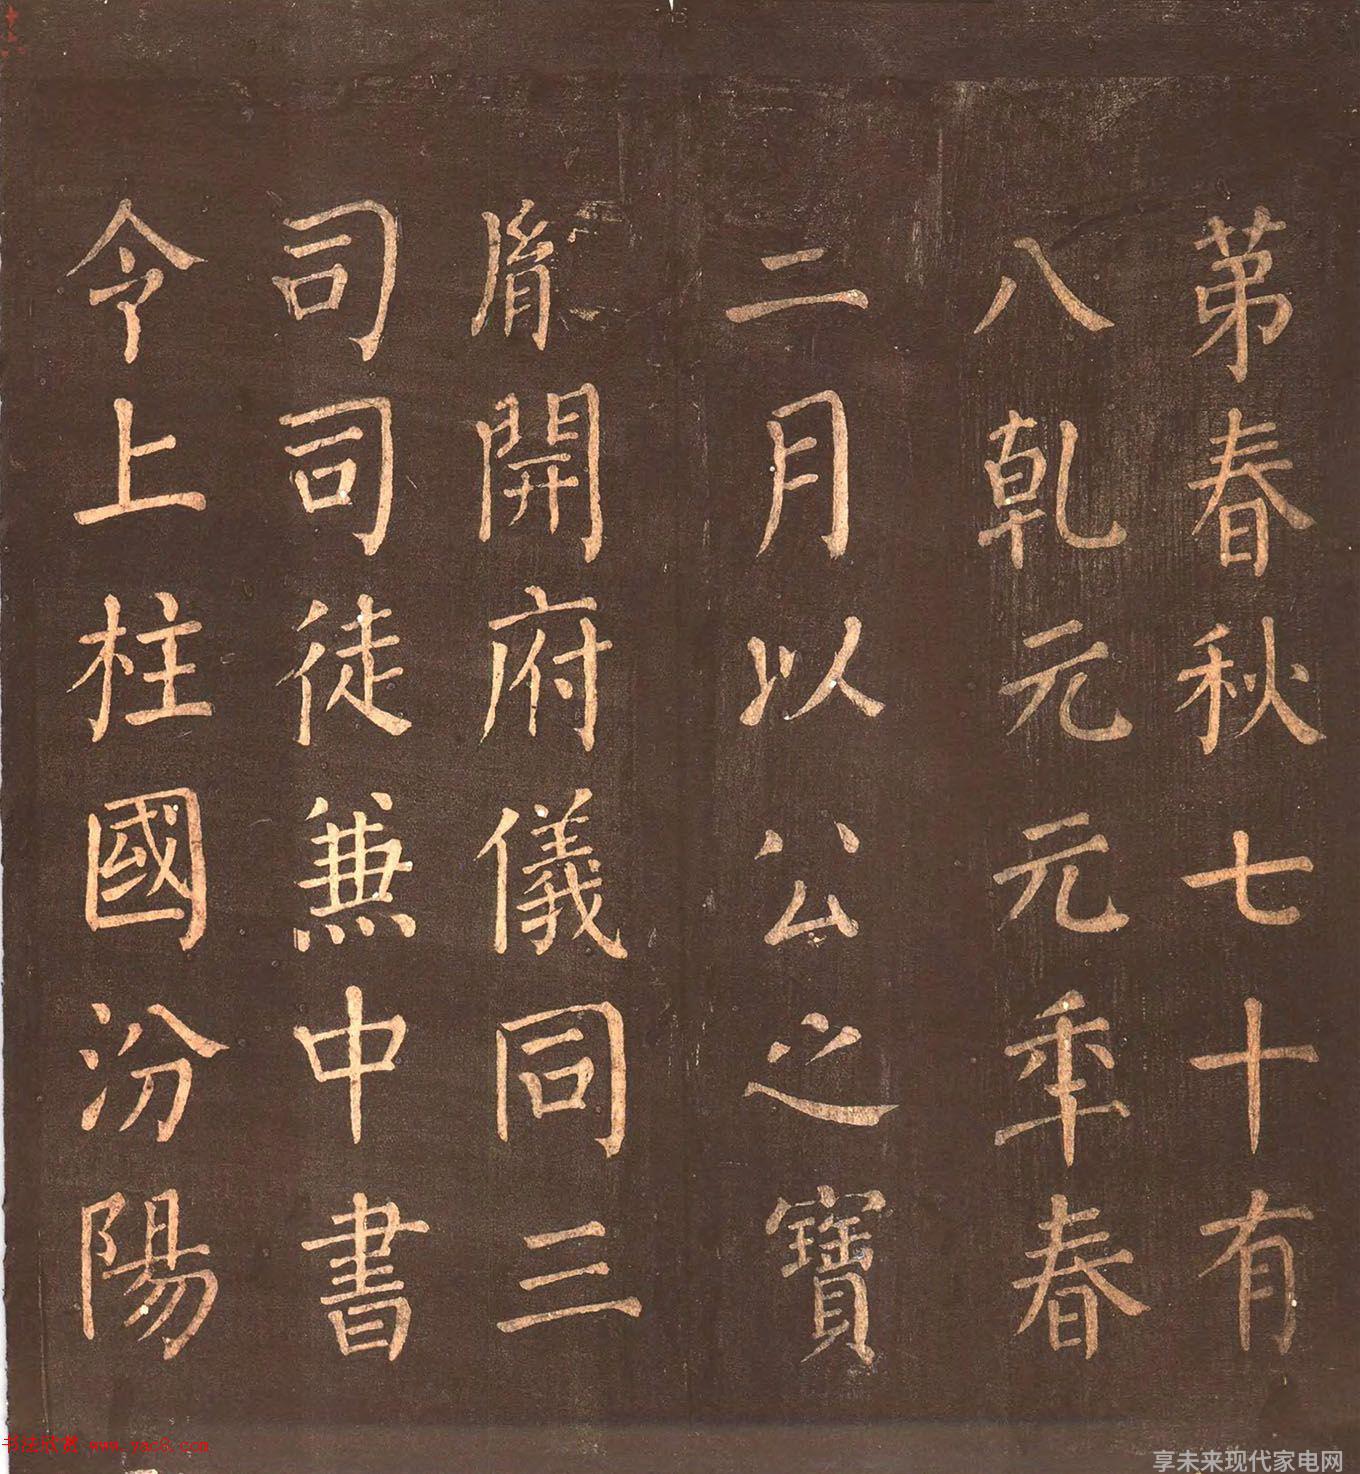 苐春秋七十有
八乹元元秊春
二月以公之寶
胤開府儀同三
司司徒兼中書
令上柱國汾陽
书法欣赏 www.yac8.com
享未来现代家电网